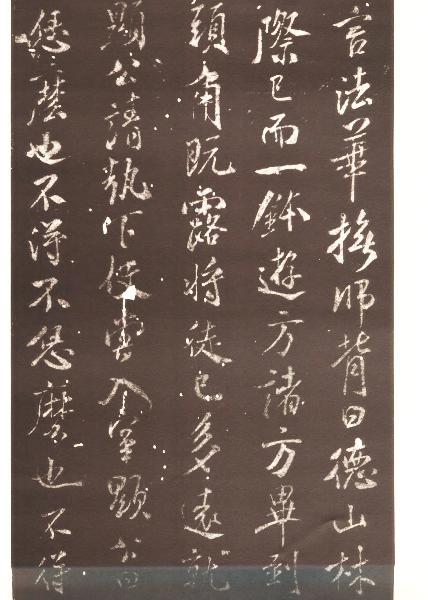 言法華撫師背曰德山林
際已而一鉢遊方諸方畢到
頭角既露將徒已多遠就
顯公請執入室顯公曰
恁麼也不得不恁麼也不得